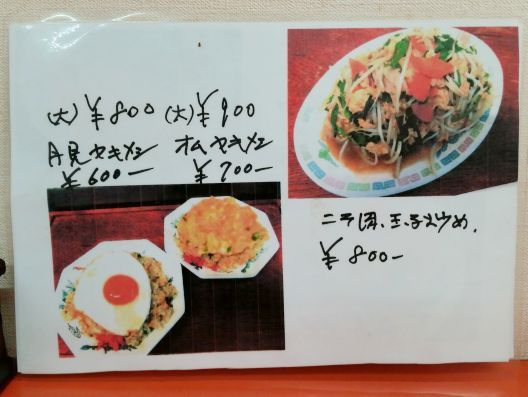 (大)¥800
月見ヤキメシ
¥600-
(大)¥900
オムヤキメシ
¥700-
ニラ肉、玉子炒め.
¥800-